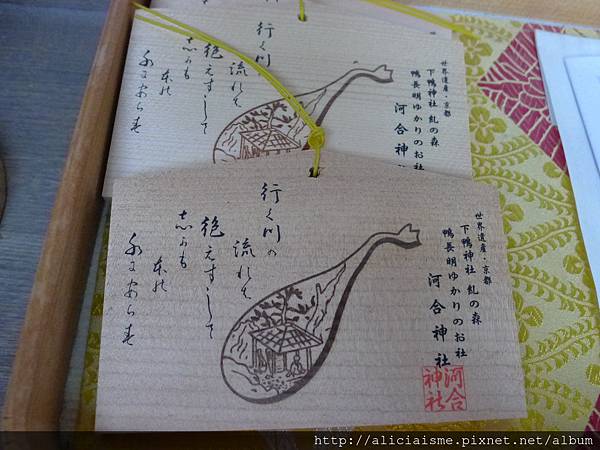 世界遺産・京都
下鴨神社 糺の森
鴨長明ゆかりのお社
河合神社
行く川
流れは
絶えすして
志かも
本の
水にあらす
世界遺産・京都
下鴨神社 糺の森
鴨長明ゆかりのお社
河合神社
河合
神社
行く川の
流れは
絶えすして
志かも
本の
水にあらす
http://aliciaisme.pixnet.net/album